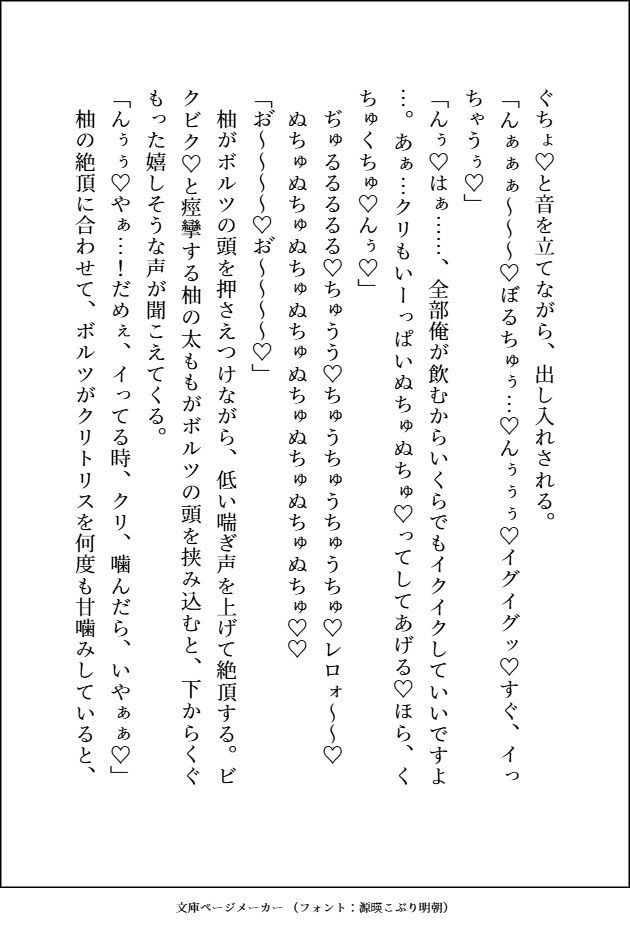 ぐちょ♡と音を立てながら、出し入れされる。
「んぁぁぁ〜〜〜♡ぼるちゅぅ…♡んぅぅぅ♡イグイグッ♡すぐ、イっ
ちゃうぅ♡」
「んぅ♡はぁ……、全部俺が飲むからいくらでもイクイクしていいですよ
…。あぁ…クリもいーっぱいぬちゅぬちゅ♡ってしてあげる♡ほら、く
ちゅくちゅ♡んぅ♡」
ぢゅるるるる♡ちゅうう♡ちゅうちゅうちゅうちゅ♡レロォ〜〜♡
ぬちゅぬちゅぬちゅぬちゅぬちゅぬちゅぬちゅぬちゅ♡♡
「お゛〜〜〜〜♡お゛〜〜〜〜♡」
柚がボルツの頭を押さえつけながら、低い喘ぎ声を上げて絶頂する。ビ
クビク♡と痙攣する柚の太ももがボルツの頭を挟み込むと、下からくぐ
もった嬉しそうな声が聞こえてくる。
「んぅぅ♡やぁ…！だめぇ、イってる時、クリ、噛んだら、いやぁぁ♡」
柚の絶頂に合わせて、ボルツがクリトリスを何度も甘噛みしていると、
文庫ページメーカー（フォント：源暎こぶり明朝）